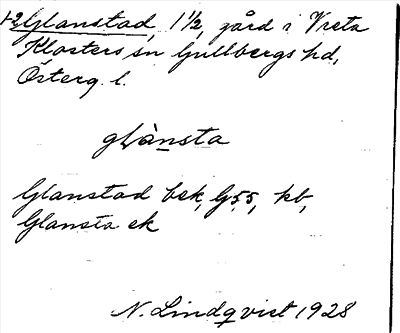 1-2 Glanstad, 1 1/2, gård i Vreta
Klosters sn Gullbergs hd,
Österg. l.
glànsta
Glanstad bsk, G55, kb,
Glansta ek
N. Lindqvist 1928